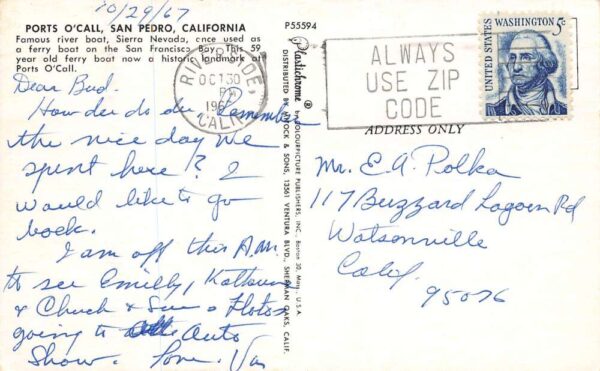 10/29/67
PORTS O'CALL, SAN PEDRO, CALIFORNIA
Famous river boat, Sierra Nevada, once used as
a ferry boat on the San Francisco Bay. This 59
year old ferry boat now a historic landmark at
Ports O'Call.
Dear Bud.
How do do. Remember
the nice day we
spent here? I
would like to go
back.
I am off this A.M.
to see Emilly,
& Chuck & Sue
going to Auto
Show. Love. Van
P55594
Plastichrome ® by COLOURPICTURE PUBLISHERS, INC., Boston 30, Mass., U.S.A.
DISTRIBUTED BY & SONS, 13561 VENTURA BLVD., SHERMAN OAKS, CALIF.
RIVERSIDE,
OCT 30
PM
196
CALIF
ALWAYS
USE ZIP
CODE
UNITED STATES
WASHINGTON 5c
ADDRESS ONLY
Mr. E.A. Polka
117 Buzzard Lagoon Rd
Watsonville
Calif.
95076